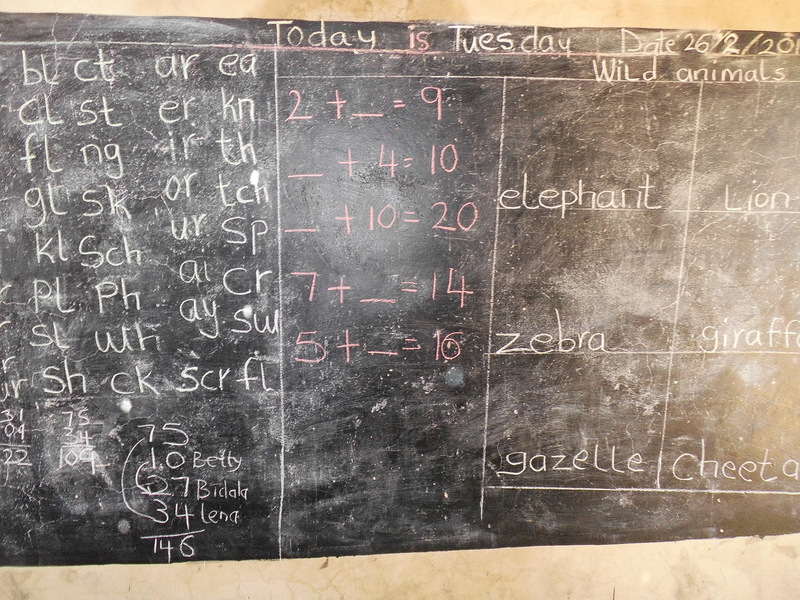 Today is Tuesday Date 26/2/201
bl ct ar ea
cl st er kn
fl ng ir th
gl sk or tch
kl sch ur sp
pl ph ai cr
sl wh ay sw
sh ck scr fl
75
34
109
75
10 Betty
27 Bidala
34 lena
146
2 + _ = 9
_ + 4 = 10
_ + 10 = 20
7 + _ = 14
5 + _ = 16
Wild animals
elephant Lion
zebra giraff
gazelle Cheeta